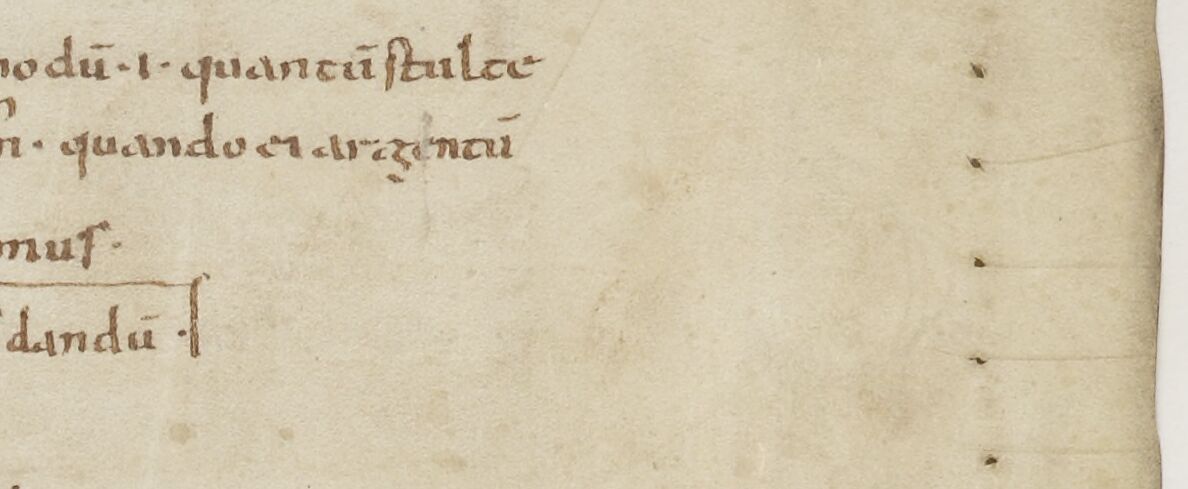 nodū · i · quantū stulte
n̄ · quando ei argentū
mus ·
dandū ·